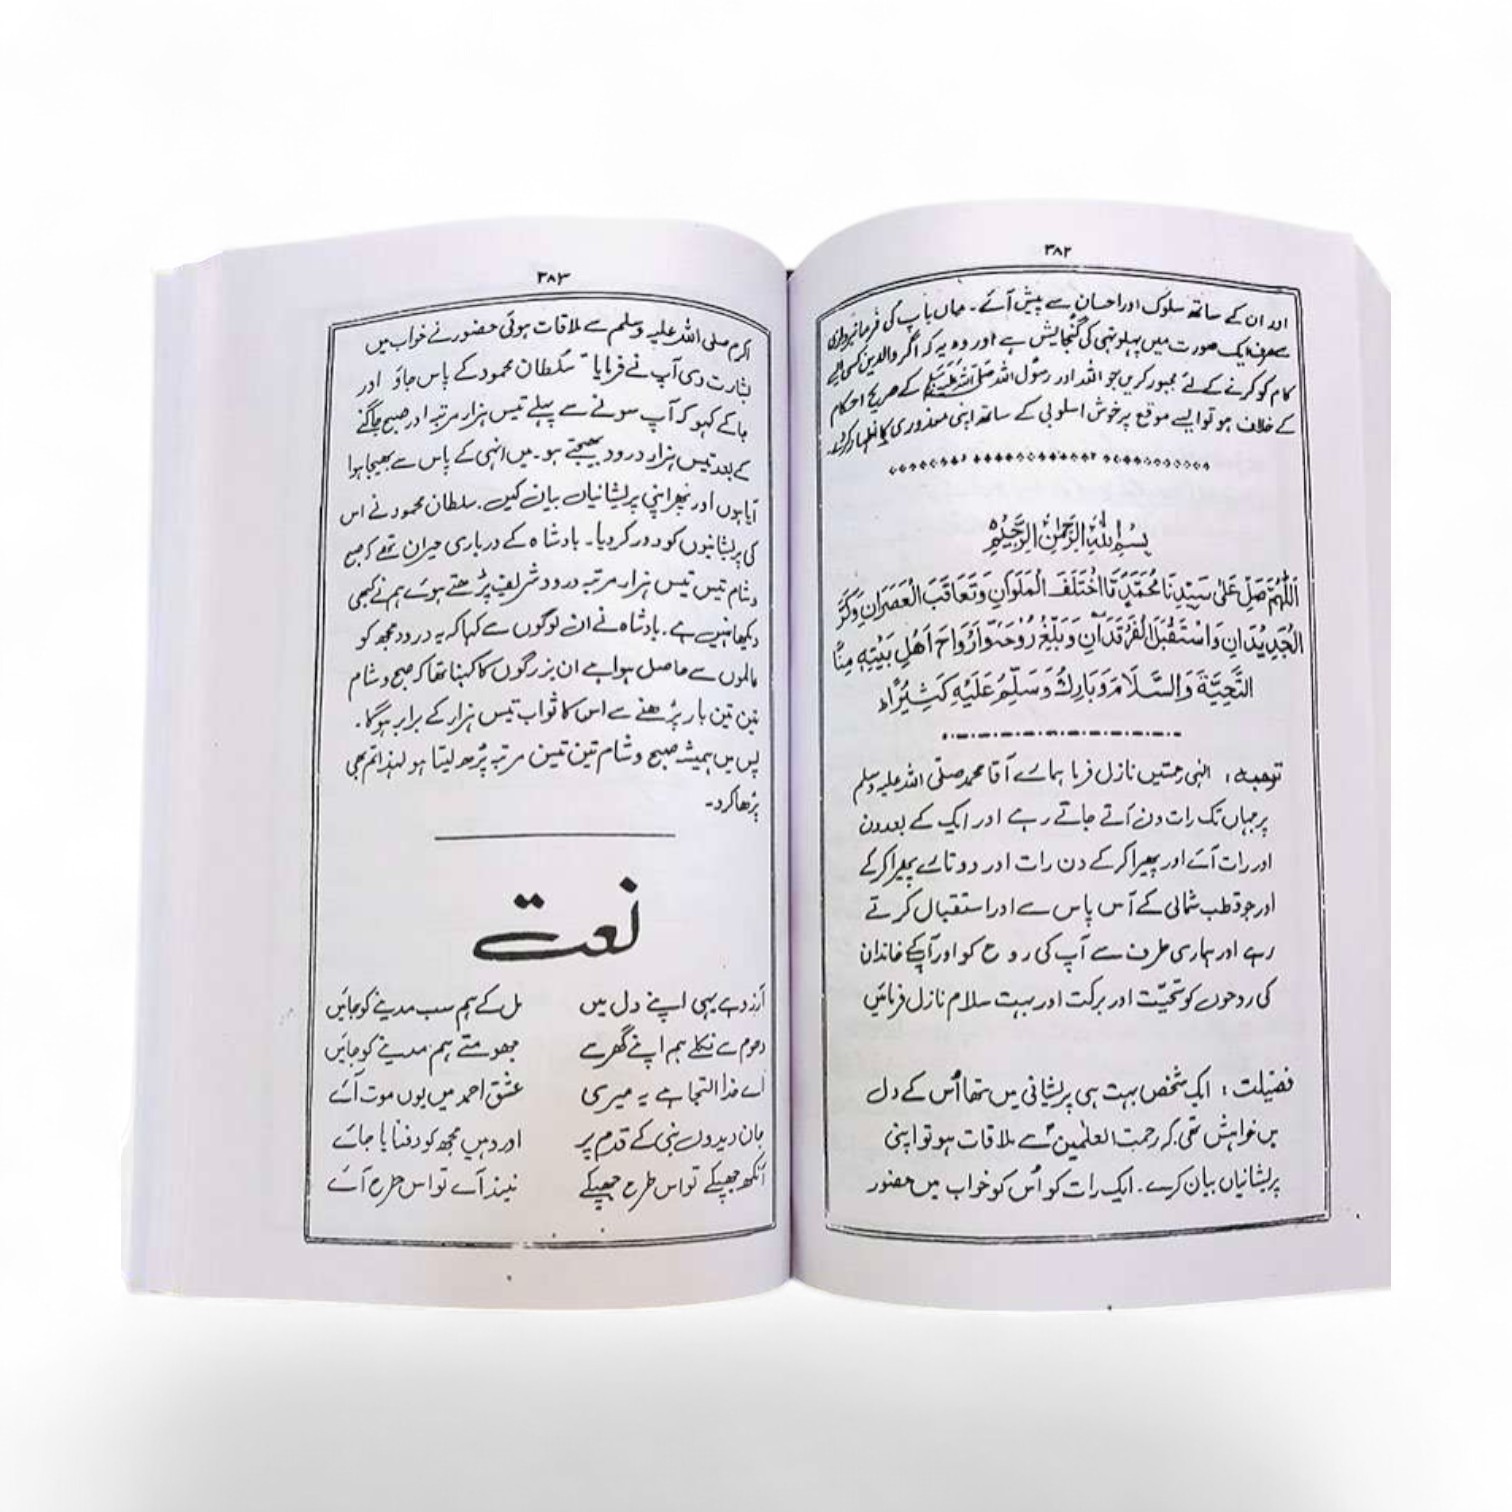 ۳۸۲
اور ان کے ساتھ سلوک اور احسان سے پیش آئے۔ ماں باپ کی فرمانبرداری
سے صرف ایک صورت میں پہلو تہی کی گنجایش ہے اور وہ یہ کہ اگر والدین کسی ایسے
کام کو کرنے کے لئے مجبور کریں جو اللہ اور رسول اللہ صلی اللہ علیہ وسلم کے صریح احکام
کے خلاف ہو تو ایسے موقع پر خوش اسلوبی کے ساتھ اپنی معذوری کا اظہار کر دے۔
بِسْمِ اللهِ الرَّحْمٰنِ الرَّحِيْمِ
اَللّٰهُمَّ صَلِّ عَلٰى سَيِّدِنَا مُحَمَّدٍ مَّا اخْتَلَفَ الْمَلَوَانِ وَتَعَاقَبَ الْعَصَرَانِ وَكَرَّ
الْجَدِيْدَانِ وَاسْتَقْبَلَ الْفَرْقَدَانِ وَبَلِّغْ رُوْحَهٗ وَاَرْوَاحَ اَهْلِ بَيْتِهٖ مِنَّا
التَّحِيَّةَ وَالسَّلَامَ وَبَارِكْ وَسَلِّمْ عَلَيْهِ كَثِيْرًا ط
توجہہ: الٰہی رحمتیں نازل فرما ہمارے آقا محمد صلی اللہ علیہ وسلم
پر جہاں تک رات دن آتے جاتے رہے اور ایک کے بعد دن
اور رات آئے اور پھیرا کر کے دن رات اور دو تارے پھیرا کر کے
اور جو قطب شمالی کے آس پاس سے اور استقبال کرتے
رہے اور ہماری طرف سے آپ کی روح کو اور آپکے خاندان
کی روحوں کو تحیّت اور برکت اور بہت سلام نازل فرمائیں
فضیلت: ایک شخص بہت ہی پریشانی میں تھا اُس کے دل
میں خواہش تھی کہ رحمت العلمین سے ملاقات ہو تو اپنی
پریشانیاں بیان کرے۔ ایک رات کو اُس کو خواب میں حضور
۳۸۳
اکرم صلی اللہ علیہ وسلم سے ملاقات ہوئی حضور نے خواب میں
بشارت دی آپ نے فرمایا "سلطان محمود کے پاس جاؤ اور
جا کے کہو کہ آپ سونے سے پہلے تیس ہزار مرتبہ اور صبح جاگنے
کے بعد تیس ہزار درود بھیجتے ہو۔ میں انہی کے پاس سے بھیجا ہوا
آیا ہوں اور پھر اپنی پریشانیاں بیان کیں۔ سلطان محمود نے اس
کی پریشانیوں کو دور کر دیا۔ بادشاہ کے درباری حیران تھے کہ صبح
و شام تیس تیس ہزار مرتبہ درود شریف پڑھتے ہوئے ہم نے کبھی
دیکھا نہیں ہے۔ بادشاہ نے ان لوگوں سے کہا کہ یہ درود مجھ کو
عالموں سے حاصل ہوا ہے ان بزرگوں کا کہنا تھا کہ صبح و شام
تین تین بار پڑھنے سے اس کا ثواب تیس ہزار کے برابر ہوگا۔
پس میں ہمیشہ صبح و شام تین تین مرتبہ پڑھ لیتا ہو لہٰذا تم بھی
پڑھا کرد۔
نعت
آرزو ہے یہی اپنے دل میں مل کے ہم سب مدینے کو جائیں
دھوم سے نکلے ہم اپنے گھر سے جھومتے ہم مدینے کو جائیں
اے خدا التجا ہے یہ میری عشق احمد میں یوں موت آئے
جان دیدوں نبی کے قدم پر اور وہیں مجھ کو دفنایا جائے
آنکھ جھپکے تو اس طرح جھپکے نیند آے تو اس طرح آئے